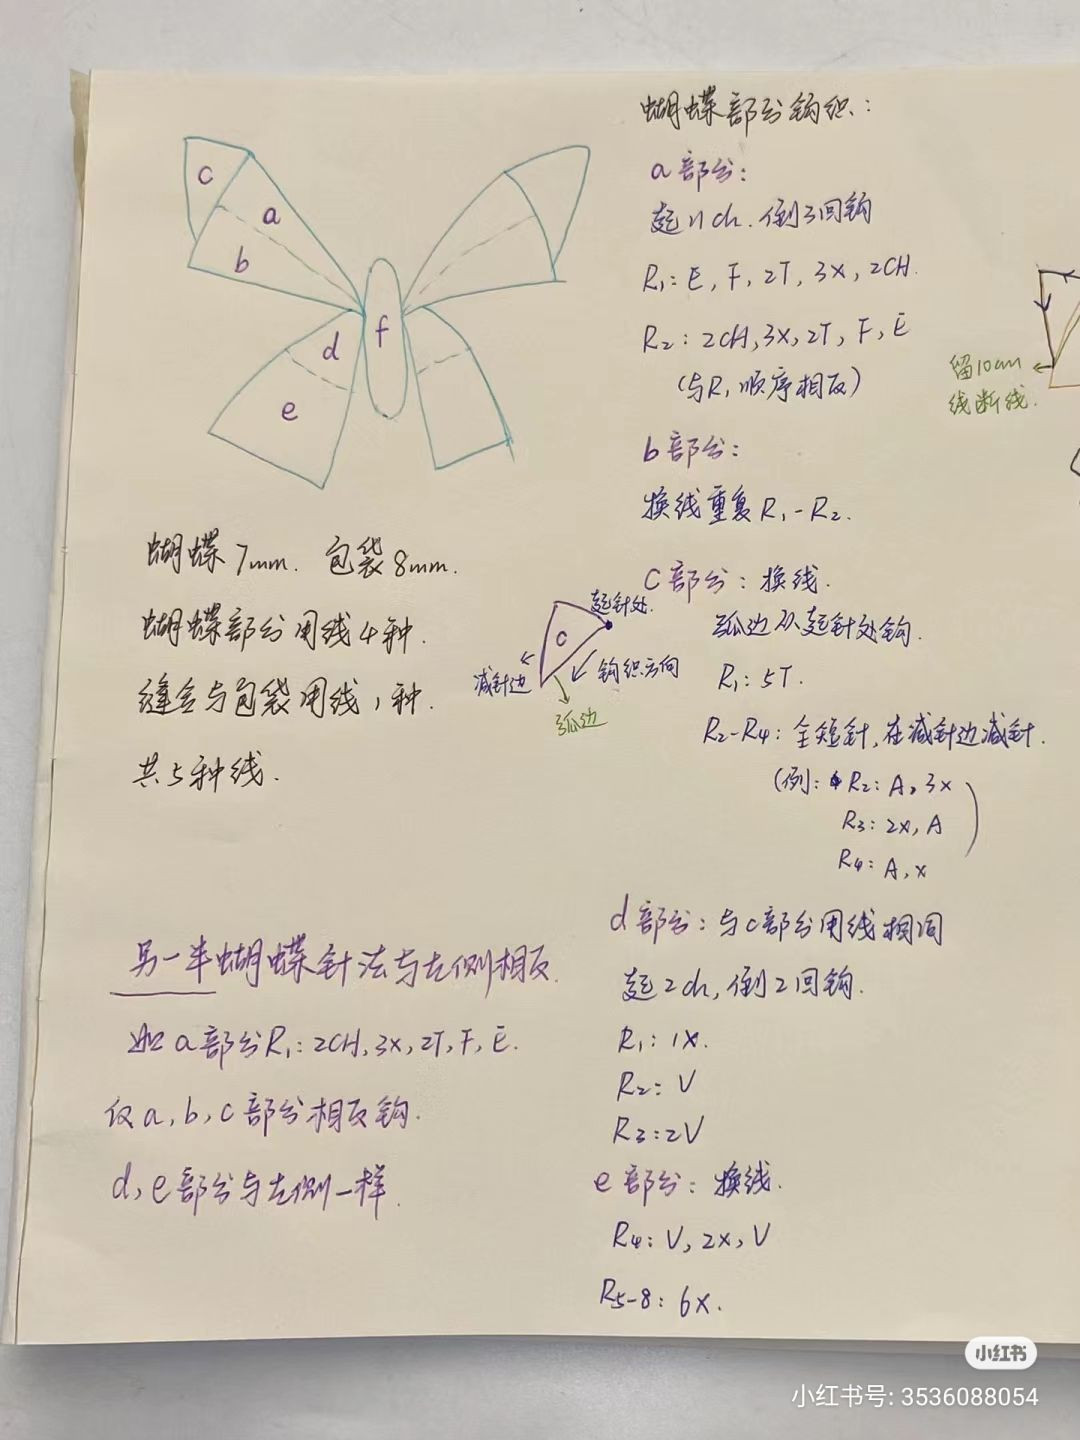 c
a
b
d
e
f
蝴蝶7mm. 包袋8mm.
蝴蝶部分用线4种.
缝合与包袋用线1种.
共5种线.
另一半蝴蝶针法与左侧相反.
如a部分R₁: 2CH, 3X, 2T, F, E.
仅a, b, c部分相反钩.
d, e部分与左侧一样.
蝴蝶部分钩织:
a部分:
起11ch. 倒3回钩
R₁: E, F, 2T, 3X, 2CH.
R₂: 2CH, 3X, 2T, F, E
(与R₁顺序相反)
b部分:
换线重复R₁-R₂.
c部分: 换线.
弧边从起针处钩.
R₁: 5T.
R₂-R₄: 全短针, 在减针边减针.
(例: R₂: A, 3X
R₃: 2X, A
R₄: A, X)
c
起针处.
减针边
钩织方向
弧边
d部分: 与c部分用线相同
起2ch, 倒2回钩.
R₁: 1X.
R₂: V
R₃: 2V
e部分: 换线.
R₄: V, 2X, V
R5-8: 6X.
留10cm
线断线.
小红书
小红书号: 3536088054